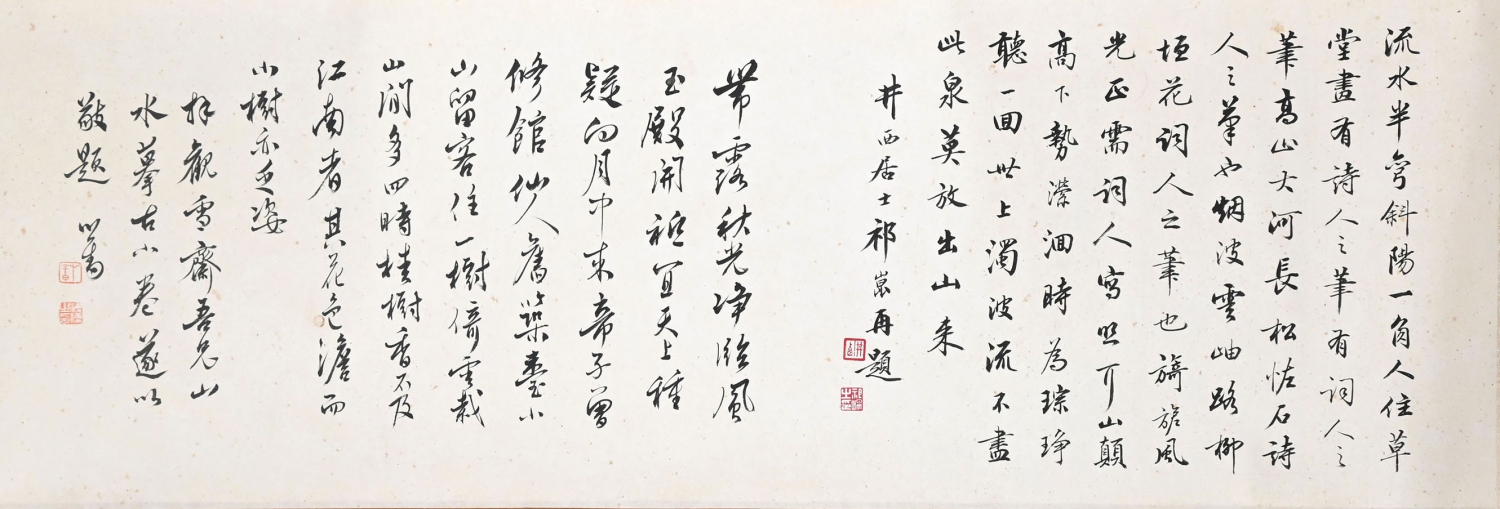 流水半彎斜陽一角人住草
堂畫有詩人之筆有詞人之
筆高山大河長松怪石詩
人之筆也烟波雲岫路柳
垣花詞人之筆也旖旎風
光正需詞人寫照 山顛
高下勢瀠洄時為琮琤
聽一回世上濁波流不盡
此泉莫放出山來
井西居士祁崑再題
帶露秋光净臨風
玉殿開祗宜天上種
疑向月中來帝子曾
修館仙人舊築臺小
山留客住一樹倚雲栽
山澗多四時桂樹香不及
江南者其花色澹而
小樹亦乏姿
拜觀雪齋吾兄山
水摹古小卷遂以
敬題 心畬